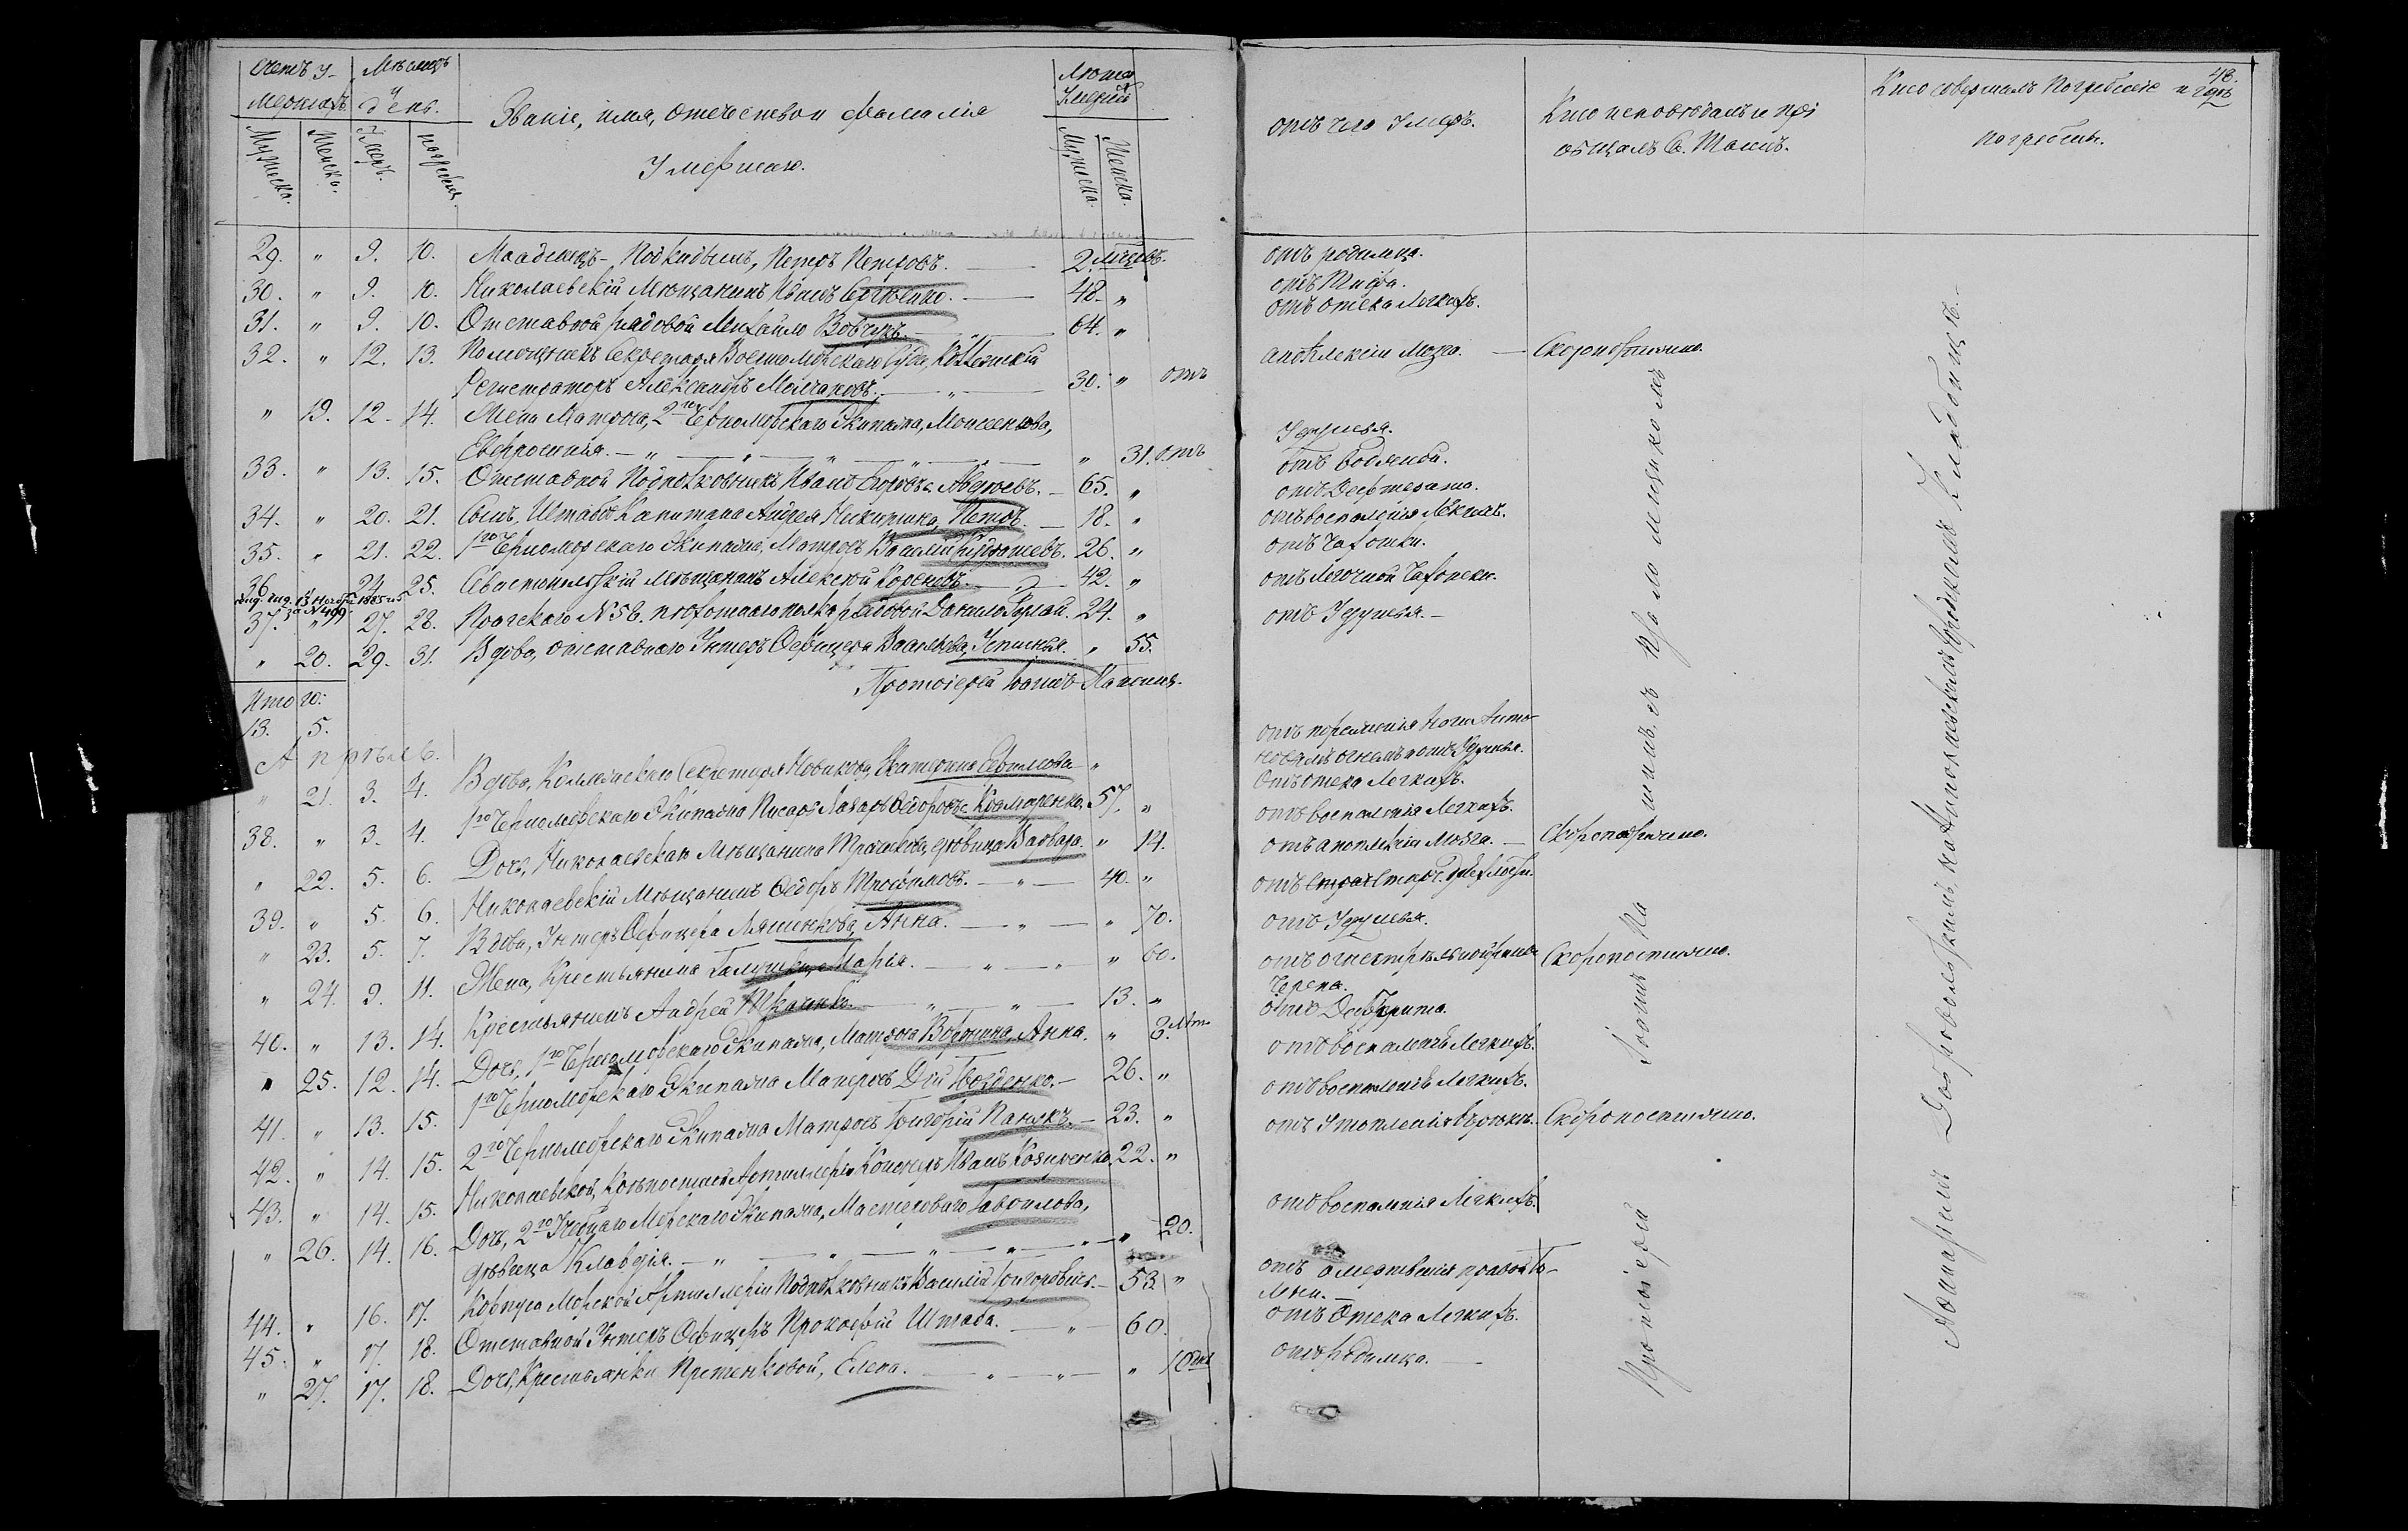 Счетъ у-
мершихъ.
Мѣсяцъ
и
день.
Званіе, имя, отечество и фамилія
Умершаго.
Лѣта
Умерш.
Мужеска.
Женска.
Умер.
погребен.
Мужеска.
Женска.
отъ чего умеръ.
Кто исповѣдалъ и прі
общалъ Св. Таинъ.
Кто совершалъ погребеніе и гдѣ
погребены.
48.
29. " 9. 10. Младенецъ-Подкидышъ, Петръ Петровъ. 2. мѣсяцевъ. отъ родимца.
30. " 9. 10. Николаевскій Мѣщанинъ Иванъ 48. " отъ Тифа.
31. " 9. 10. Отставной рядовой Михайло Вовчукъ. 64. " отъ отека Легкихъ.
32. " 12. 13. Помощникъ Секретаря Военноморскаго Суда, Коллежскій
Регистраторъ Александръ Молчановъ. 30. " отъ апоплексіи Мозга. Скоропостижно.
" 19. 12. 14. Жена Матроса, 2го Черноморскаго Экипажа, Моисеенкова,
Евфросинія. " 31. отъ Удушья.
33. " 13. 15. Отставной Подполковникъ Иванъ Авдѣевъ. 65. " отъ Водяной.
34. " 20. 21. Сынъ, Штабсъ Капитана Андрея Никишина, Петръ. 18. " отъ Дифтерита.
35. " 21. 22. 1го Черноморскаго Экипажа, Матросъ Василій 26. " отъ воспаленія Легкихъ.
36. 24. 25. Севастопольскій мѣщанинъ Алексѣй Кореневъ. 42. " отъ Чахотки.
13 Ноябр. 1885 г.
за № 499
37. " 27. 28. Пражскаго № 58. пѣхотнаго полка рядовой Данило 24. " отъ Легочной Чахотки.
" 20. 29. 31. Вдова, отставнаго Унтеръ Офицера Васильева, Устинья. " 55. отъ Удушья.
Протоіерей Іоаннъ
Итого:
13. 5.
Апрѣль.
" 21. 3. 4. Вдова, Коллежскаго Секретаря Новикова, Екатерина " отъ пораженія ноги Анто-
новымъ огнемъ и отъ Удушья.
38. " 3. 4. 1го Черноморскаго Экипажа Писарь Лазарь Крамаренко. 57. " отъ отека Легкихъ.
" 22. 5. 6. Дочь, Николаевскаго Мѣщанина дѣвица Варвара. " 14. отъ воспаленія Легкихъ.
39. " 5. 6. Николаевскій Мѣщанинъ Ѳедоръ Трофимовъ. 40. " отъ апоплексіи Мозга. Скоропостижно.
" 23. 5. 7. Вдова, Унтеръ Офицера Ляшенкова, Анна. " 70. отъ Старч. дряхлости.
" 24. 9. 11. Жена, Крестьянина Марья. " 60. отъ Удушья.
40. " 13. 14. Крестьянинъ Андрей Ткаченко. 13. " отъ огнестрѣльной раны
Черепа. Скоропостижно.
" 25. 12. 14. Дочь, 1го Черноморскаго Экипажа, Матроса Анна. " 3. лѣт. отъ Дифтерита.
41. " 13. 15. 1го Черноморскаго Экипажа Матросъ 26. " отъ воспаленія Легкихъ.
42. " 14. 15. 2го Черноморскаго Экипажа Матросъ Григорій Панюкъ. 23. " отъ воспаленія Легкихъ.
43. " 14. 15. Николаевской, Крѣпостной Артиллеріи Канонеръ Иванъ Козиренко. 22. " отъ Утопленія Скоропостижно.
" 26. 14. 16. Дочь, 2го Учебнаго Морскаго Экипажа, Мастероваго Гаврилова,
дѣвица Клавдія. " 20. отъ воспаленія Легкихъ.
44. " 16. 17. Корпуса Морской Артиллеріи Подполковникъ Василій Григоровичъ. 53. " отъ омертвенія правой Го-
лени.
45. " 17. 18. Отставной Унтеръ Офицеръ Прокофій Штаба. 60. отъ Отека Легкихъ.
" 27. 17. 18. Дочь, Крестьянки Претенковой, Елена. " 10 дн. отъ Родимца.
Протоіерей Іоаннъ
Аѳанасіемъ Добровольскимъ, на Николаевскомъ городскомъ кладбищѣ.